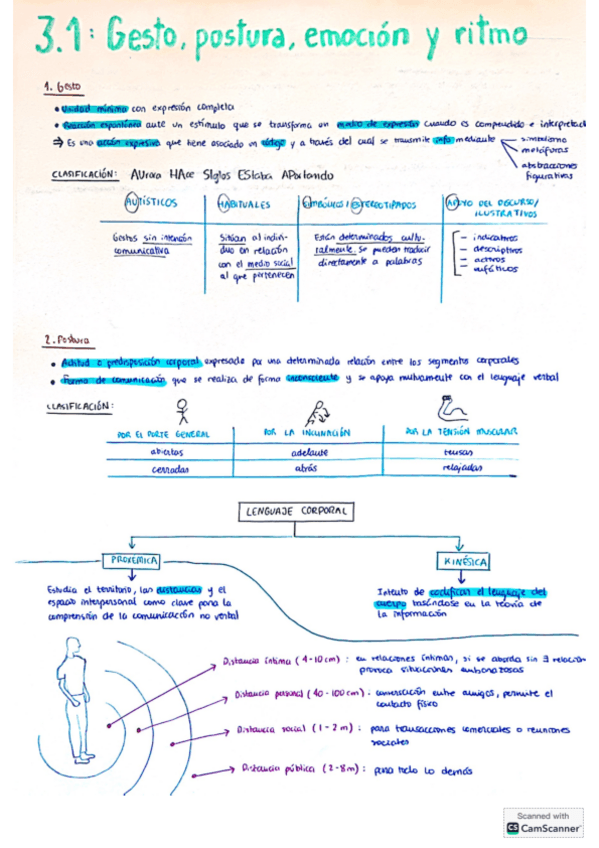 3.1: Gesto, postura, emoción y ritmo
1. Gesto
• Unidad mínima con expresión completa
• Reacción espontánea ante un estímulo que se transforma en medio de expresión cuando es comprendido e interpretad
⇒ Es una acción expresiva que tiene asociado un código y a través del cual se transmite info mediante
simbolismo
metáforas
abstracciones
figurativas
CLASIFICACIÓN: AUrora HAce SIglos EStaba APoriando
AUTÍSTICOS
HABITUALES
SIMBÓLICOS / ESTEREOTIPADOS
APOYO DEL DISCURSO/
ILUSTRATIVOS
Gestos sin intención
comunicativa
Sitúan al indivi-
duo en relación
con el medio social
al que pertenecen
Están determinados cultu-
ralmente. Se pueden traducir
directamente a palabras
- indicativos
- descriptivos
- activos
- enfáticos
2. Postura
• Actitud o predisposición corporal expresada por una determinada relación entre los segmentos corporales
• Forma de comunicación que se realiza de forma inconsciente y se apoya mutuamente con el lenguaje verbal
CLASIFICACIÓN:
POR EL PORTE GENERAL
POR LA INCLINACIÓN
POR LA TENSIÓN MUSCULAR
abiertas
adelante
tensas
cerradas
atrás
relajadas
LENGUAJE CORPORAL
PROXEMICA
KINÉSICA
Estudia el territorio, las distancias y el
espacio interpersonal como clave para la
comprensión de la comunicación no verbal
Intento de codificar el lenguaje del
cuerpo basándose en la teoría de
la información
Distancia íntima (4-10cm) : en relaciones íntimas, si se aborda sin ∃ relación
provoca situaciones embarazosas
Distancia personal (40-100cm) : conversación entre amigos, permite el
contacto físico
Distancia social (1-2m) : para transacciones comerciales o reuniones
sociales
Distancia pública (2-8m) : para todo lo demás
Scanned with
CS CamScanner